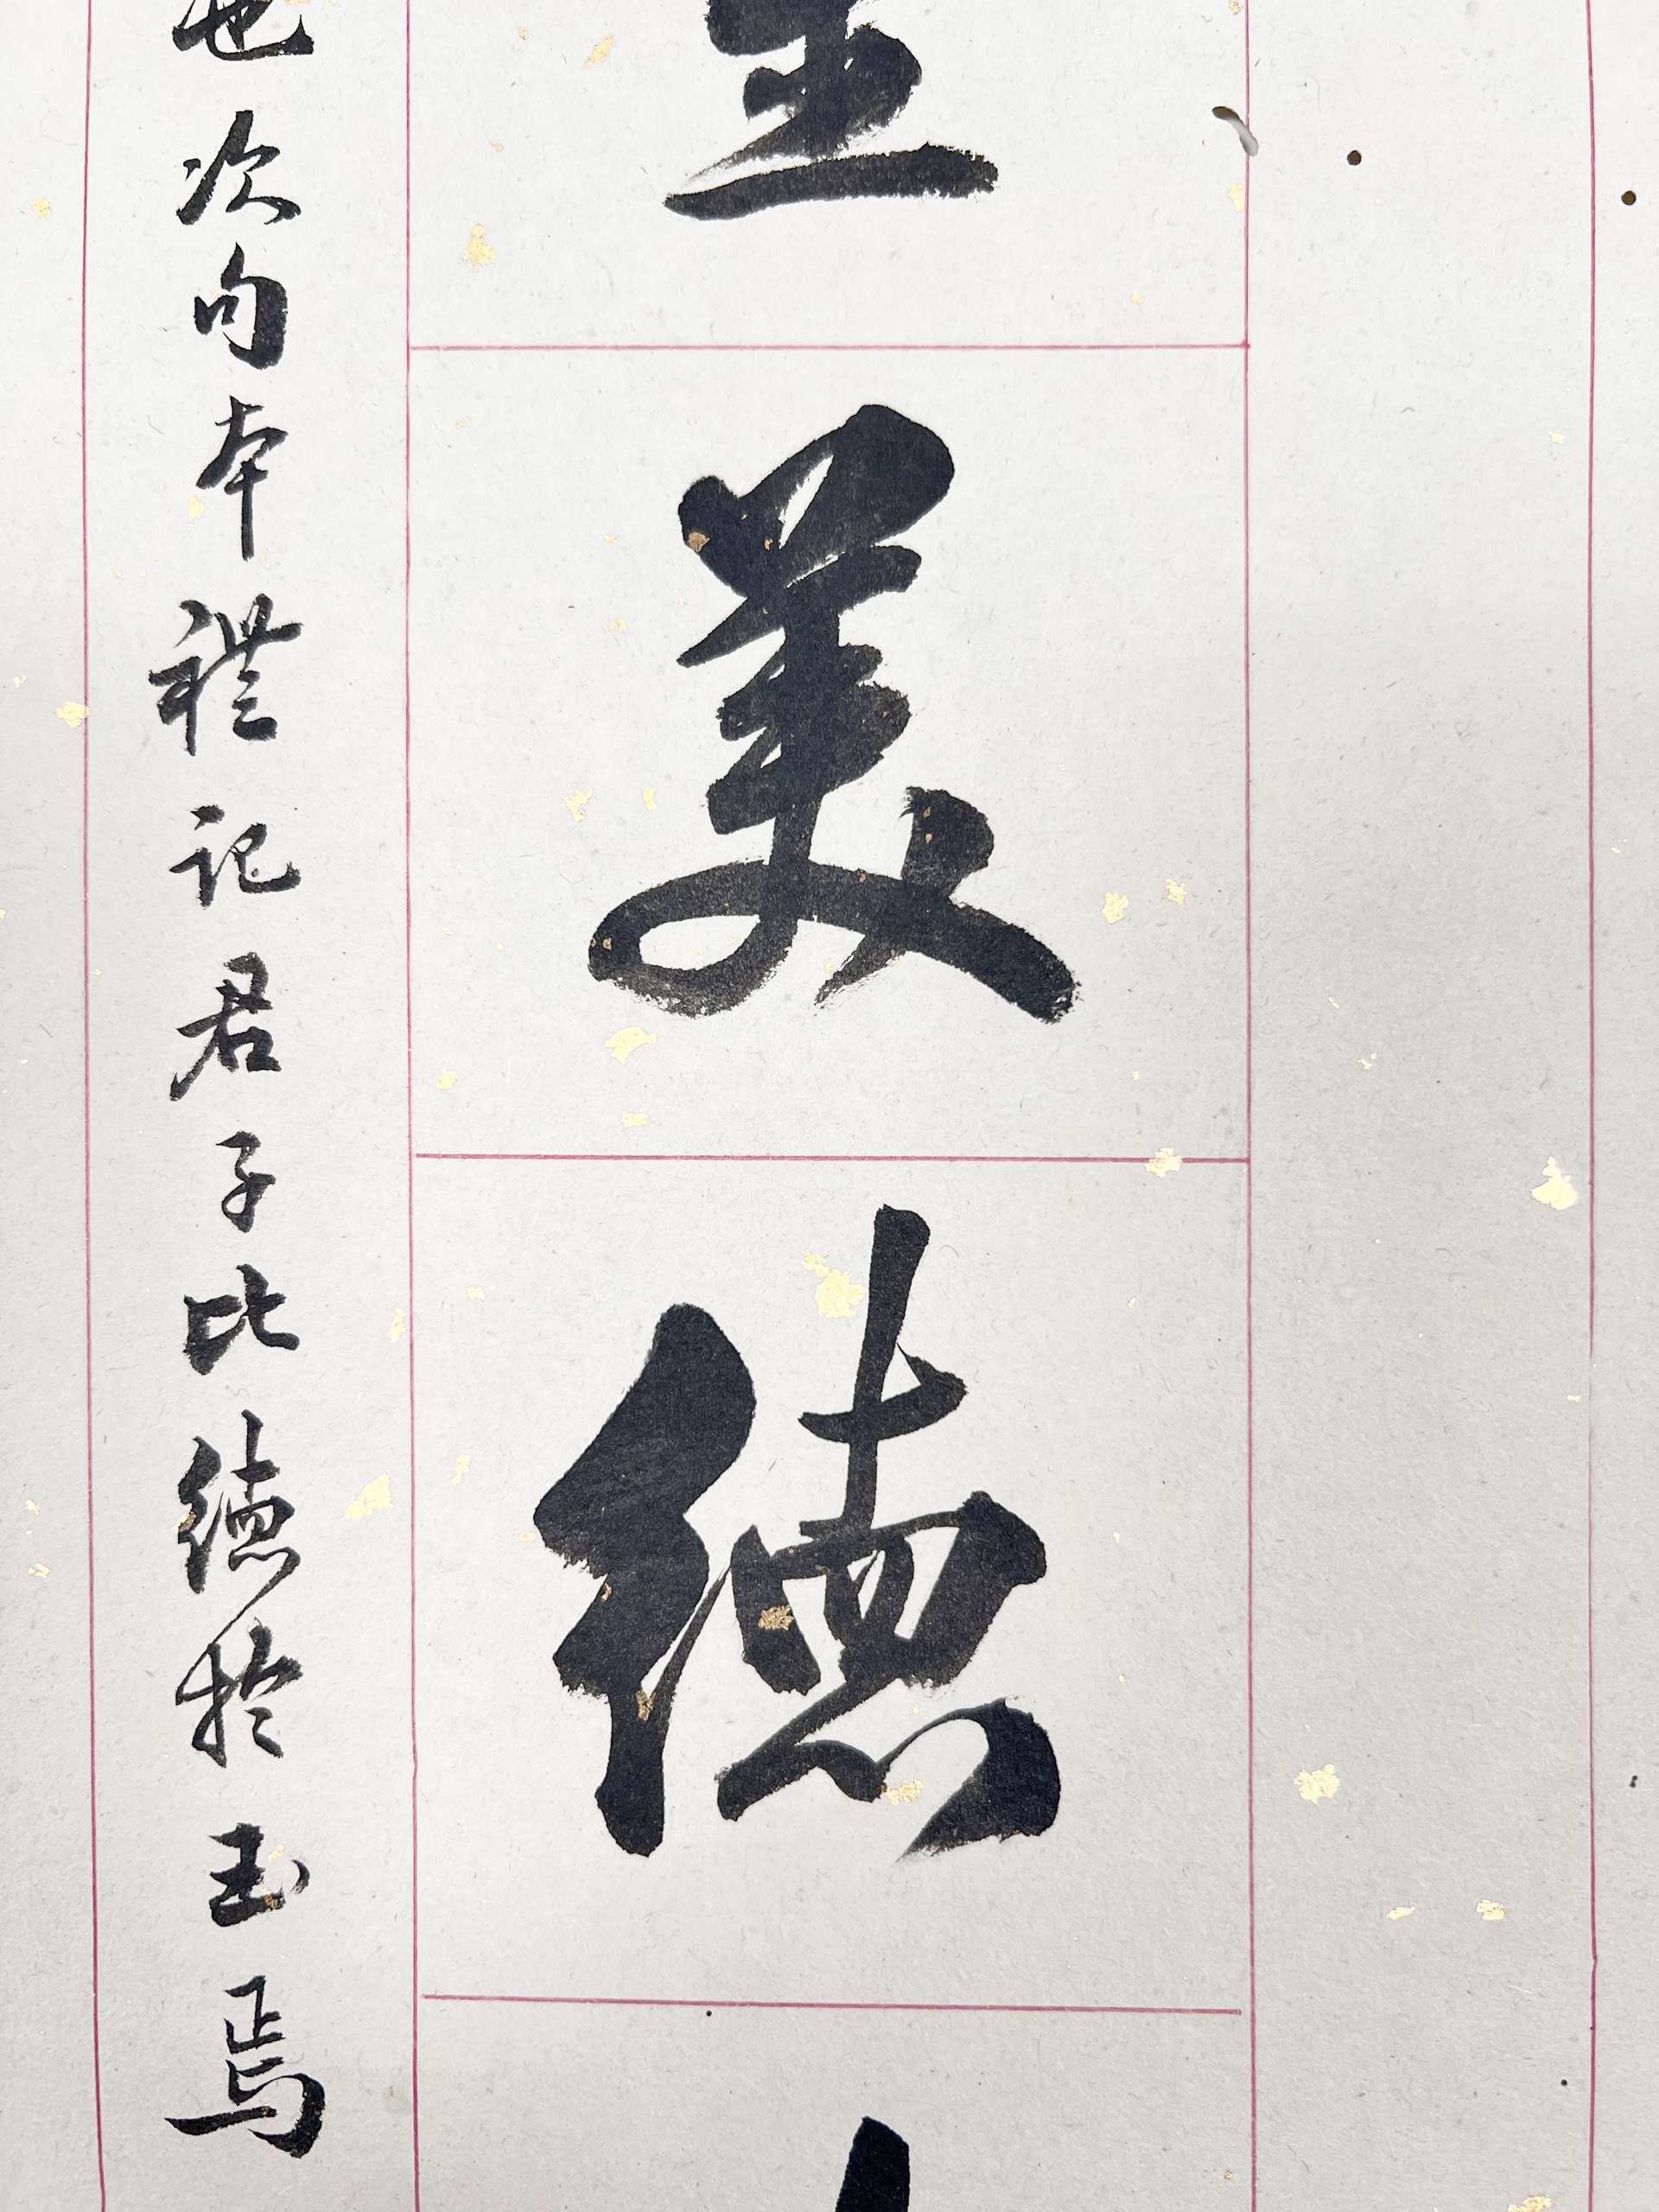 美德
也次句本禮記君子比德於玉焉